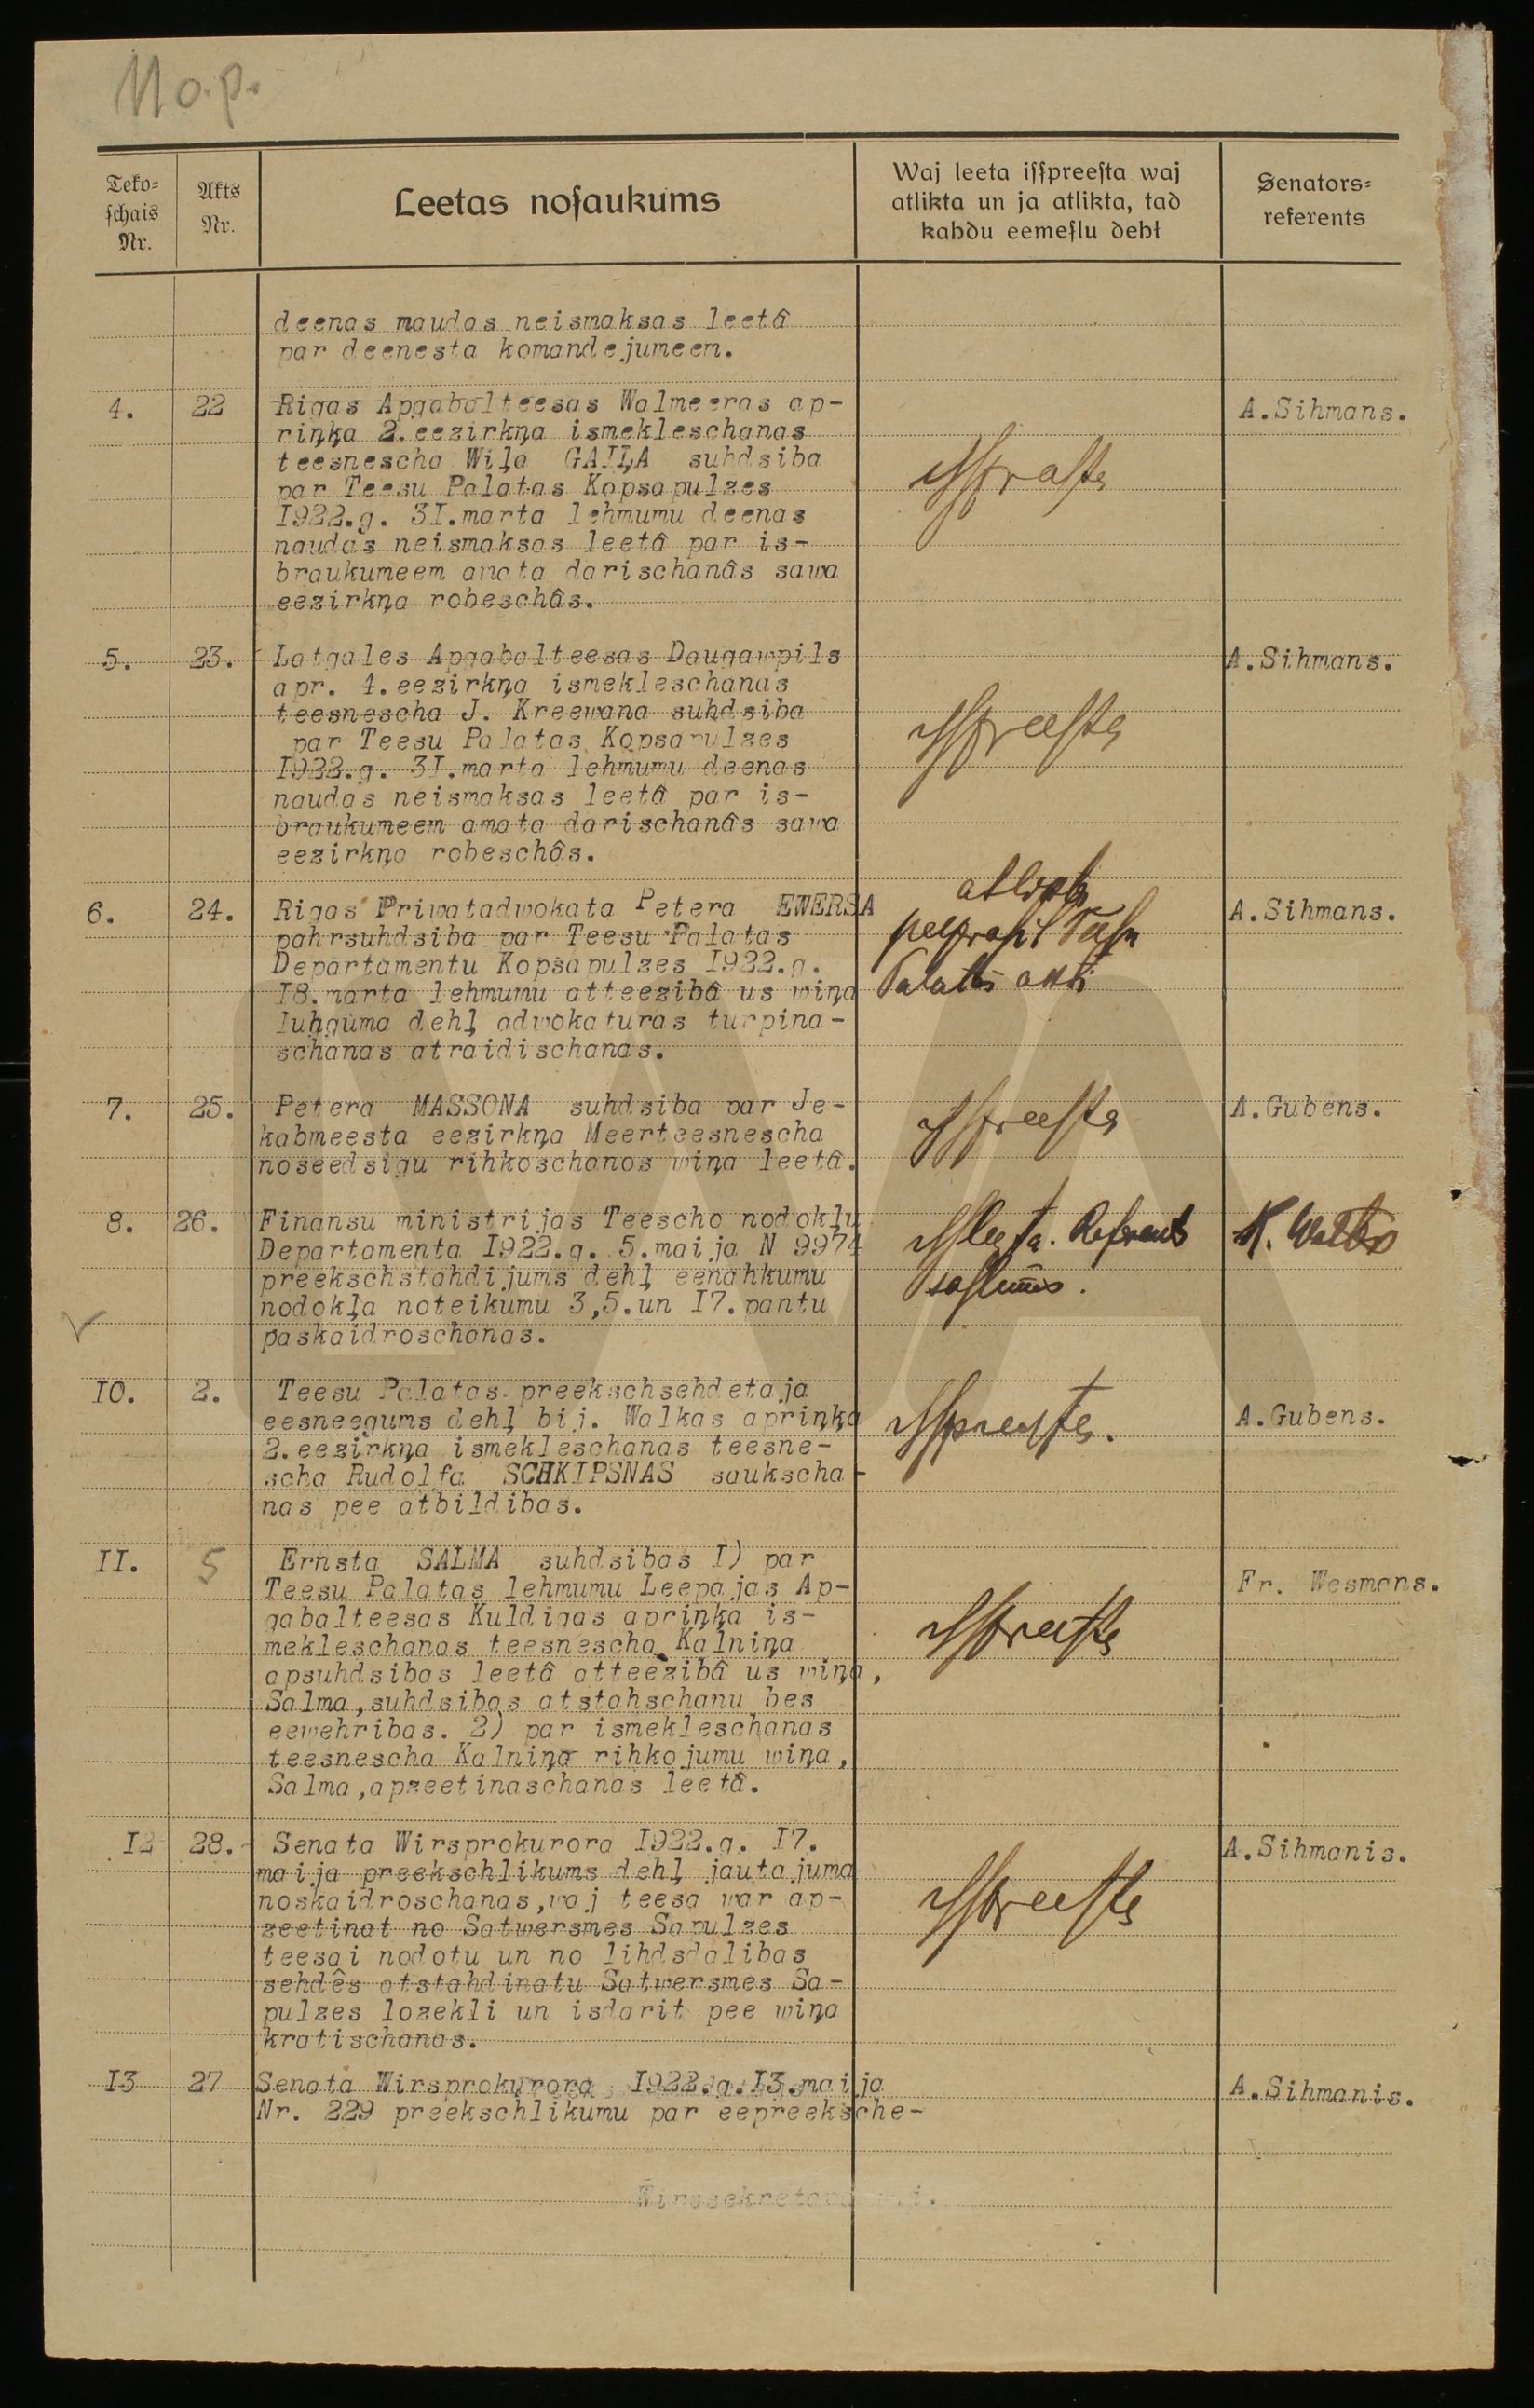 11 o.p.
Teko=
schais
Nr.
Akts
Nr.
Leetas nosaukums
Waj leeta isspreesta waj
atlikta un ja atlikta, tad
kahdu eemeslu dehl
Senators=
referents
deenas maudas neismaksas leetâ
par deenesta komandejumeem.
4. 22 Rigas Apgabalteesas Walmeeras ap-
riņķa 2.eezirkņa ismekleschanas
teesnescha Wiļa GAIĻA suhdsiba
par Teesu Palatas Kopsapulzes
1922.g. 31.marta lehmumu deenas
naudas neismaksas leetâ par is-
braukumeem amata darischanâs sawa
eezirkņa robeschâs.
isspreesta
A.Sihmans.
5. 23. Latgales Apgabalteesas Daugawpils
apr. 4.eezirkņa ismekleschanas
teesnescha J. Kreewana suhdsiba
par Teesu Palatas Kopsapulzes
1922.g. 31.marta lehmumu deenas
naudas neismaksas leetâ par is-
braukumeem amata darischanâs sawa
eezirkņa robeschâs.
isspreesta
A.Sihmans.
6. 24. Rigas Priwatadwokata Petera EWERSA
pahrsuhdsiba par Teesu Palatas
Departamentu Kopsapulzes 1922.g.
18.marta lehmumu atteezibâ us wiņa
luhguma dehļ adwokaturas turpina-
schanas atraidischanas.
atlikta
peeprasit Teesu
Palatas akti
A.Sihmans.
7. 25. Petera MASSONA suhdsiba par Je-
kabmeesta eezirkņa Meerteesnescha
noseedsigu rihkoschanos wiņa leetâ.
isspreesta
A.Gubens.
8. 26. Finansu ministrijas Teescho nodokļu
Departamenta 1922.g. 5.maija N 9974
preekschstahdijums dehļ eenahkumu
nodokļa noteikumu 3,5.un 17.pantu
paskaidroschanas.
Referents
saslimis.
K. Walters
10. 2. Teesu Palatas preekschsehdetaja
eesneegums dehļ bij. Walkas apriņķa
2.eezirkņa ismekleschanas teesne-
scha Rudolfa SCHKIPSNAS saukscha-
nas pee atbildibas.
isspreesta.
A.Gubens.
11. 5 Ernsta SALMA suhdsibas 1) par
Teesu Palatas lehmumu Leepajas Ap-
gabalteesas Kuldigas apriņķa is-
mekleschanas teesnescha Kalniņa
apsuhdsibas leetâ atteezibâ us wiņa,
Salma,suhdsibas atstahschanu bes
eewehribas. 2) par ismekleschanas
teesnescha Kalniņa rihkojumu wiņa,
Salma,apzeetinaschanas leetâ.
isspreesta
Fr. Wesmans.
12 28. Senata Wirsprokurora 1922.g. 17.
maija preekschlikums dehļ jautajuma
noskaidroschanas,waj teesa war ap-
zeetinat no Satwersmes Sapulzes
teesai nodotu un no lihdsdalibas
sehdês atstahdinatu Satwersmes Sa-
pulzes lozekli un isdarit pee wiņa
kratischanas.
isspreesta
A.Sihmanis.
13 27 Senata Wirsprokurora 1922.g.13.maija
Nr. 229 preekschlikumu par eepreeksche-
A.Sihmanis.
Wirssekretara